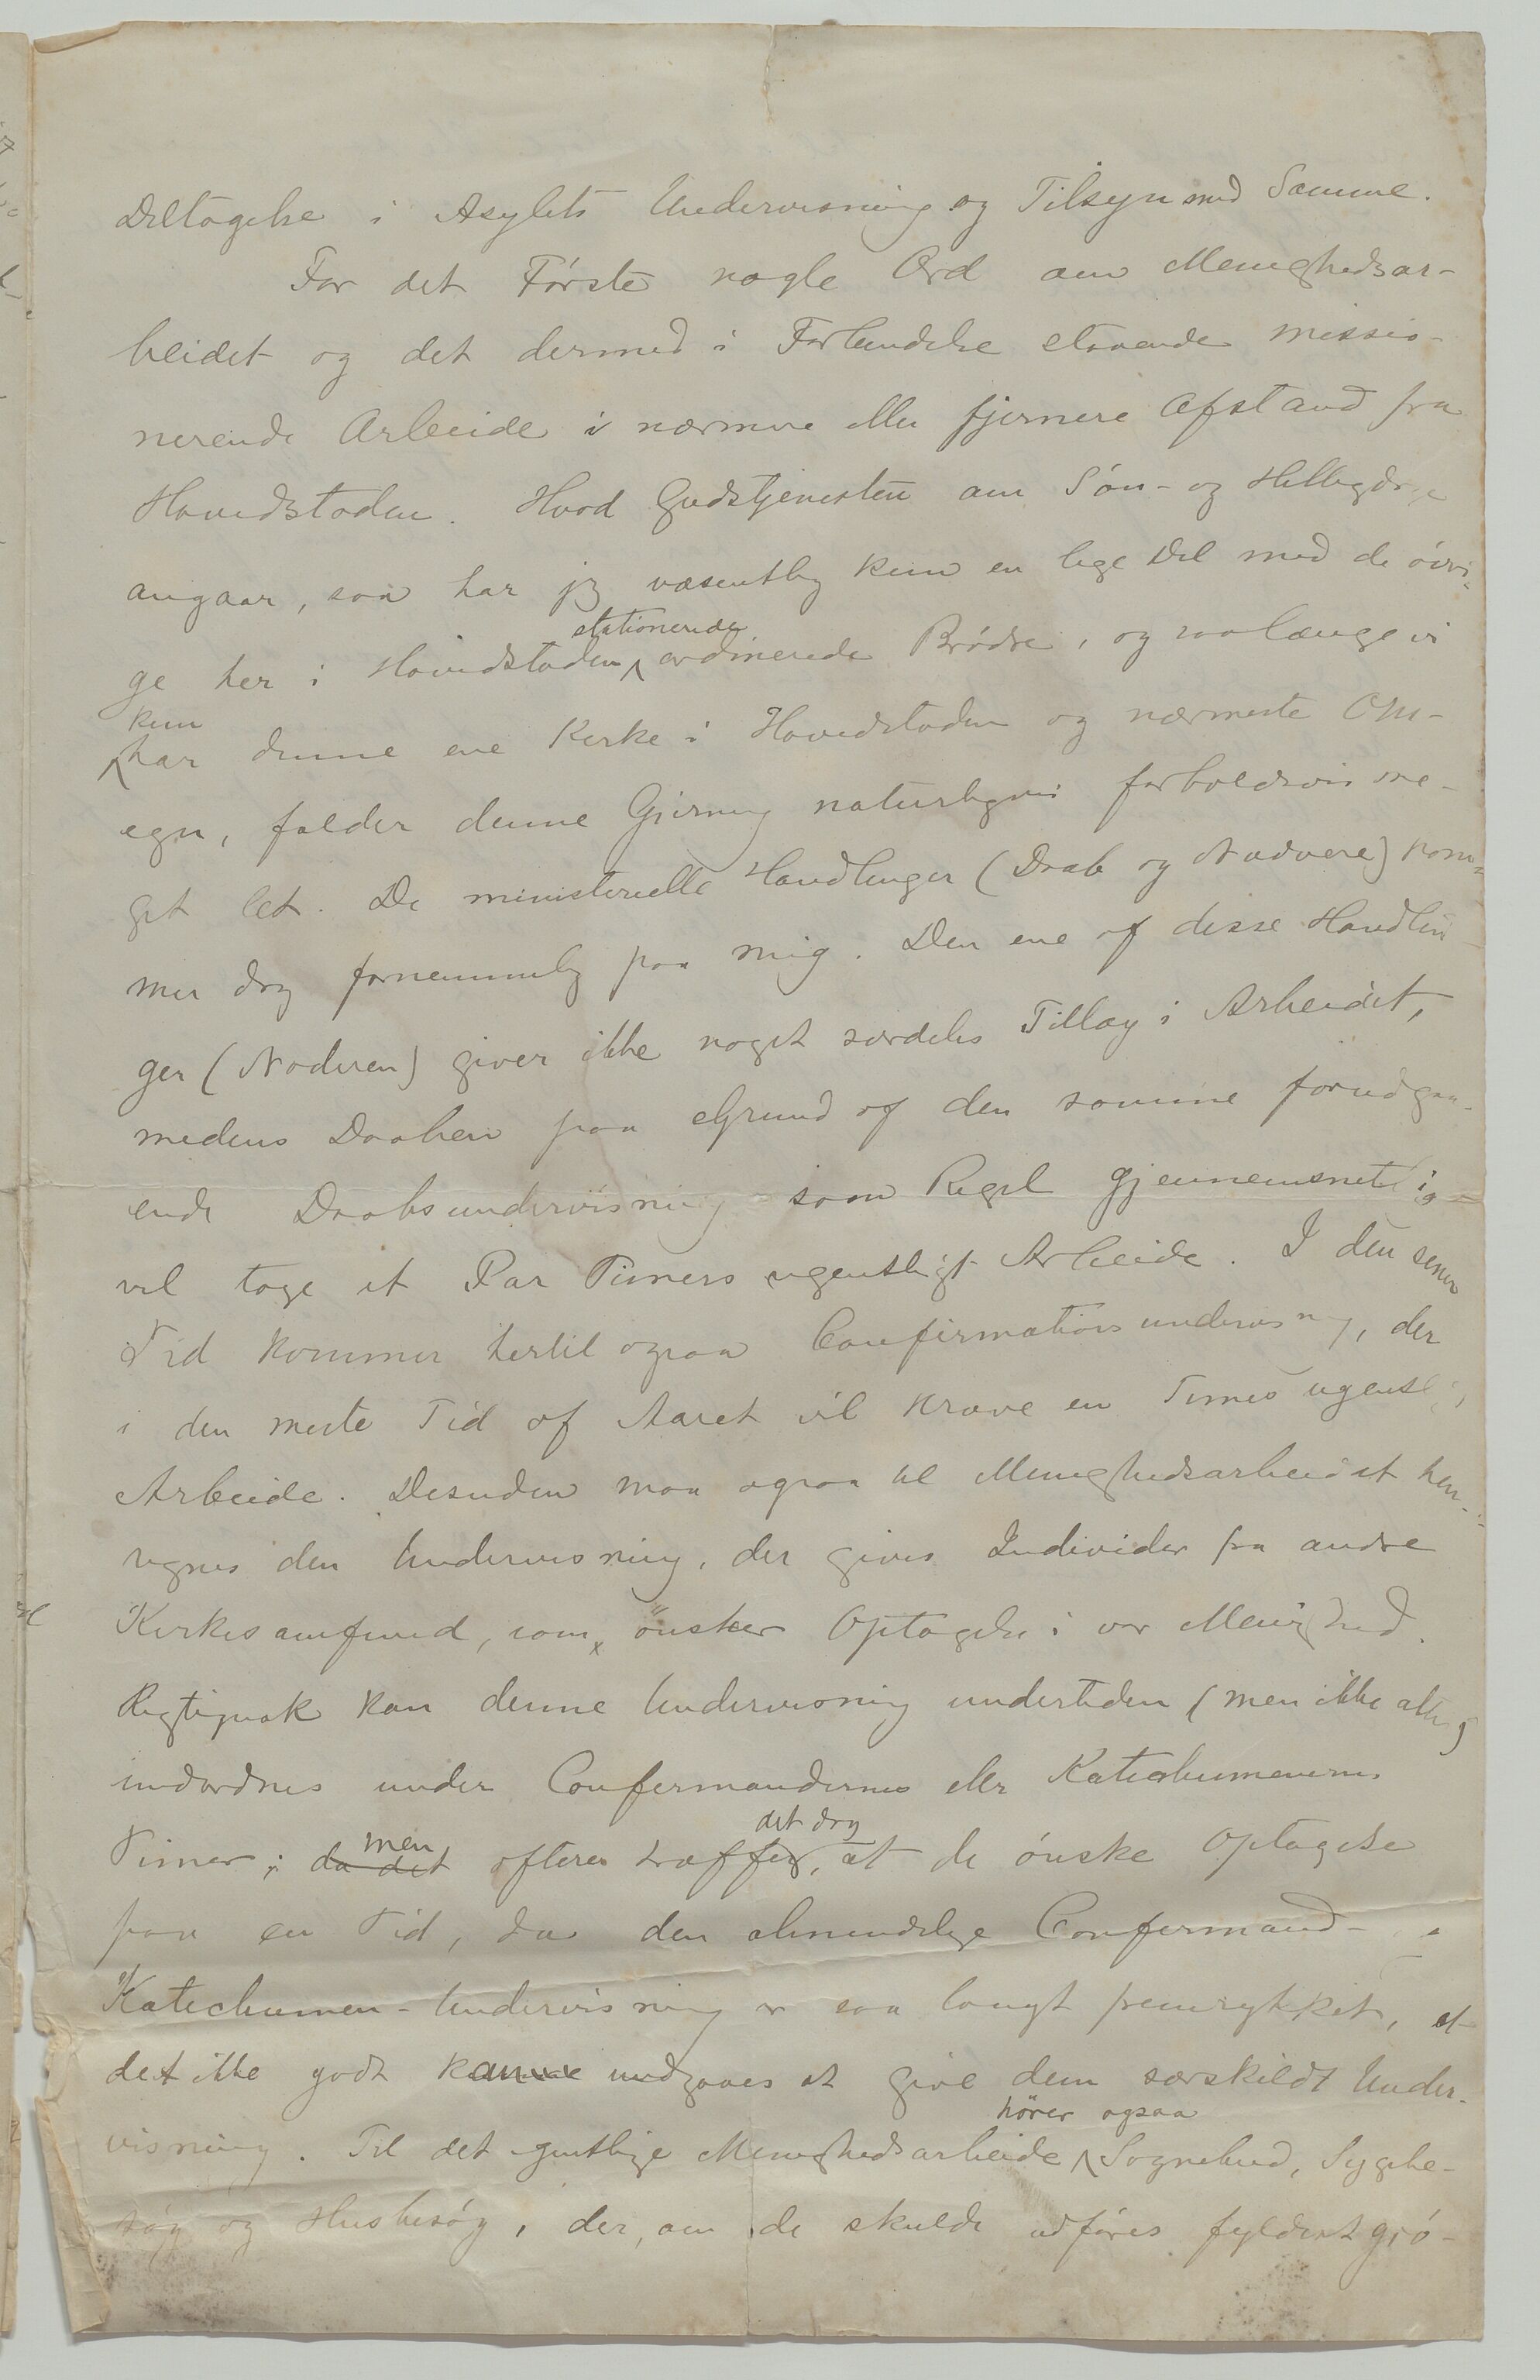 Deltagelse i Asylets Undervisning og Tilsyn med Samme.
For det Første nogle Ord om Menighedsar-
beidet og det dermed i Forbindelse staaende missio-
nerende Arbeide i nærmere eller fjernere Afstand fra
Hovedstaden. Hvad Gudstjenesten om Søn- og Helligdage
angaar, saa har jeg væsentlig kun en lige Del med de øvri-
stationerede
ge her i Hovedstaden ordinerede Brødre, og saalænge vi
kun
har denne ene Kirke i Hovedstaden og nærmeste Om-
egn, falder denne Gjerning naturligvis forholdsvis me-
get let. De ministerielle Handlinger (Daab og Nadvere) kom-
mer dog fornemmelig paa mig. Den ene af disse Handlin-
ger (Nadveren) giver ikke noget særdeles Tillæg i Arbeidet,
medens Daaben paa Grund af den samme forudgaa-
ende Daabsundervisning som Regel gjennemsnitlig
vil tage et Par Timers ugentligt Arbeide. I den senere
Tid kommer hertil ogsaa Confirmationsundervisning, der
i den meste Tid af Aaret vil kræve en Times ugentlig
Arbeide. Desuden maa ogsaa til Menighedsarbeidet hen-
regnes den Undervisning, der gives Individer fra andre
Kirkesamfund, som ønsker Optagelse i vor Menighed.
Rigtignok kan denne Undervisning undertiden (men ikke altid)
indordnes under Confirmandernes eller Katechumenernes
men det dog
Timer; da det oftere træffer, at de ønske Optagelse
paa en Tid, da den almindelige Confirmand-
Katechumen-Undervisning er saa langt fremrykket, at
det ikke godt kan undgaaes at give dem særskildt Under-
hører ogsaa
visning. Til det egentlige Menighedsarbeide Sognebud, Sygebe-
søg og Husbesøg, der, om de skulde udføres fyldestgjø-